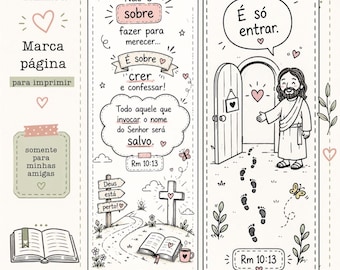 Marca
página
para imprimir
somente
para
minhas
amigas
sobre
fazer para
merecer...
É sobre
crer
e confessar!
Todo aquele que
invocar o nome
do Senhor será
salvo.
Rm 10:13
Deus
está
perto!
É só
entrar.
Rm 10:13